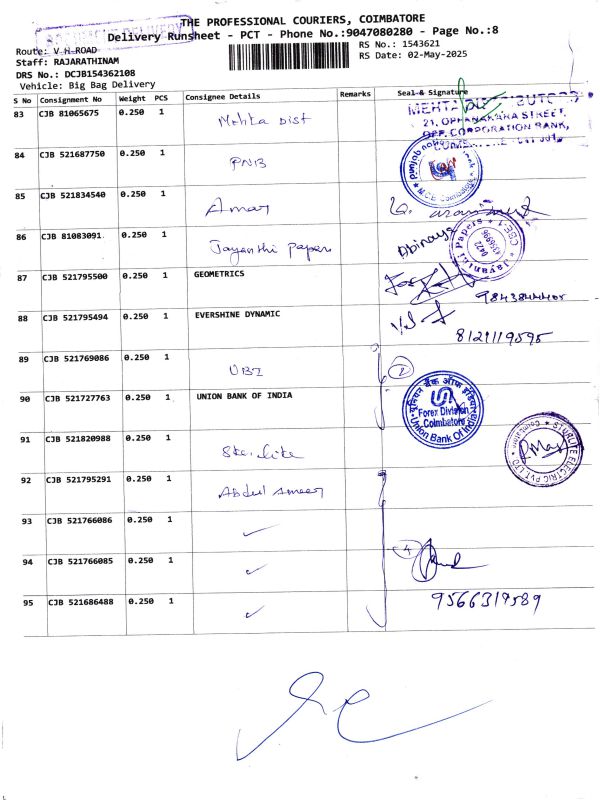 THE PROFESSIONAL COURIERS, COIMBATORE
Delivery Runsheet - PCT - Phone No.:9047080280 - Page No.:8
Route: V H ROAD
RS No.: 1543621
Staff: RAJARATHINAM
RS Date: 02-May-2025
DRS No.: DCJB154362108
Vehicle: Big Bag Delivery
S No Consignment No Weight PCS Consignee Details Remarks Seal & Signature
83 CJB 81065675 0.250 1 Mehta Dist
MEHTA DISTRIBUTORS
21, OPPANAKARA STREET,
OPP. CORPORATION BANK,
84 CJB 521687750 0.250 1 PNB
85 CJB 521834540 0.250 1 Amar
86 CJB 81083091 0.250 1 Jayanthi Papers Abinaya
Jayanthi Papers
CBE-1
0422
87 CJB 521795500 0.250 1 GEOMETRICS
88 CJB 521795494 0.250 1 EVERSHINE DYNAMIC
8121119595
89 CJB 521769086 0.250 1 UBI 2
90 CJB 521727763 0.250 1 UNION BANK OF INDIA
यूनियन बैंक ऑफ इंडिया
Forex Division
Coimbatore
Union Bank Of India
91 CJB 521820988 0.250 1
STURLITE ELECTRIC PVT LTD
92 CJB 521795291 0.250 1 Abdul Ameer
93 CJB 521766086 0.250 1
94 CJB 521766085 0.250 1 4
95 CJB 521686488 0.250 1
9566317589